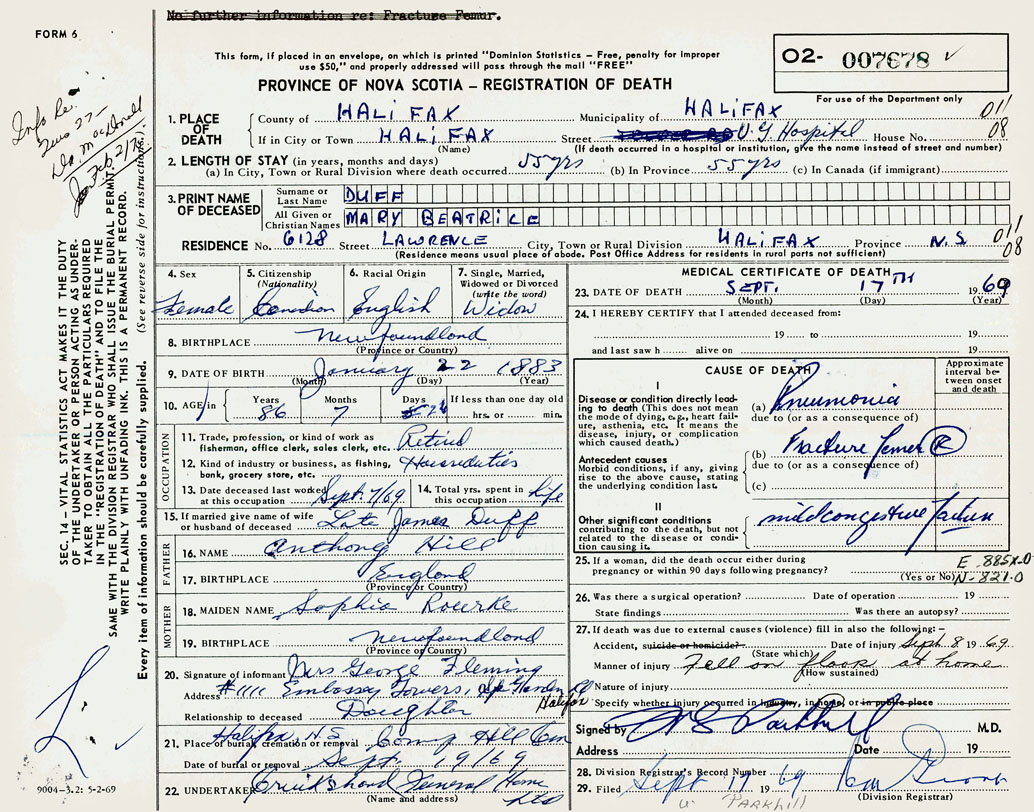 No further information re: Fracture Femur.
FORM 6
This form, if placed in an envelope, on which is printed "Dominion Statistics – Free, penalty for improper
use $50," and properly addressed will pass through the mail "FREE"
O2- 007678
For use of the Department only
PROVINCE OF NOVA SCOTIA – REGISTRATION OF DEATH
1. PLACE OF DEATH
County of HALIFAX Municipality of HALIFAX 011
If in City or Town HALIFAX Street V.G. Hospital House No. 08
(Name) (If death occurred in a hospital or institution, give the name instead of street and number)
2. LENGTH OF STAY (in years, months and days)
(a) In City, Town or Rural Division where death occurred 55 yrs (b) In Province 55 yrs (c) In Canada (if immigrant)
3. PRINT NAME OF DECEASED
Surname or Last Name DUFF
All Given or Christian Names MARY BEATRICE
RESIDENCE No. 6128 Street LAWRENCE City, Town or Rural Division HALIFAX Province N.S. 011
(Residence means usual place of abode. Post Office Address for residents in rural parts not sufficient) 08
4. Sex Female
5. Citizenship (Nationality) Canadian
6. Racial Origin English
7. Single, Married, Widowed or Divorced (write the word) Widow
8. BIRTHPLACE Newfoundland
(Province or Country)
9. DATE OF BIRTH January 22 1883
(Month) (Day) (Year)
10. AGE in Years 86 Months 7 Days 26 If less than one day old hrs. or min.
OCCUPATION
11. Trade, profession, or kind of work as fisherman, office clerk, sales clerk, etc. Retired
12. Kind of industry or business, as fishing, bank, grocery store, etc. Houseduties
13. Date deceased last worked at this occupation Sept 7/69
14. Total yrs. spent in this occupation life
15. If married give name of wife or husband of deceased Late James Duff
FATHER
16. NAME Anthony Hill
17. BIRTHPLACE England
(Province or Country)
MOTHER
18. MAIDEN NAME Sophia Rourke
19. BIRTHPLACE Newfoundland
(Province or Country)
20. Signature of informant Mrs George Fleming
Address #1111 Embassey Towers, Halifax
Relationship to deceased Daughter
21. Place of burial, cremation or removal Halifax, N.S. Camp Hill Cem
Date of burial or removal Sept 19/69
22. UNDERTAKER Cruikshank Funeral Home Ltd
(Name and address)
MEDICAL CERTIFICATE OF DEATH
23. DATE OF DEATH SEPT. 17TH 1969
(Month) (Day) (Year)
24. I HEREBY CERTIFY that I attended deceased from:
19 to 19
and last saw h alive on 19
CAUSE OF DEATH
Approximate interval between onset and death
I
Disease or condition directly leading to death (This does not mean the mode of dying, e.g., heart failure, asthenia, etc. It means the disease, injury, or complication which caused death.)
(a) Pneumonia
due to (or as a consequence of)
Antecedent causes
Morbid conditions, if any, giving rise to the above cause, stating the underlying condition last.
(b) Fracture femur R
due to (or as a consequence of)
(c)
II
Other significant conditions contributing to the death, but not related to the disease or condition causing it.
mild congestive failure
25. If a woman, did the death occur either during pregnancy or within 90 days following pregnancy?
(Yes or No) N-821.0
26. Was there a surgical operation? Date of operation 19
State findings Was there an autopsy?
27. If death was due to external causes (violence) fill in also the following:–
Accident, suicide or homicide? Date of injury Sept. 8 1969
(State which)
Manner of injury Fell on floor at home
(How sustained)
Nature of injury
Specify whether injury occurred in industry, in home, or in public place
Signed by M.D.
Address Date 19
28. Division Registrar's Record Number
29. Filed Sept 17 1969
(Division Registrar)
PARKHILL
SEC. 14 – VITAL STATISTICS ACT MAKES IT THE DUTY
OF THE UNDERTAKER OR PERSON ACTING AS UNDER-
TAKER TO OBTAIN ALL THE PARTICULARS REQUIRED
IN THE "REGISTRATION OF DEATH" AND TO FILE THE
SAME WITH THE DIVISION REGISTRAR WHO SHALL ISSUE THE BURIAL PERMIT.
WRITE PLAINLY WITH UNFADING INK. THIS IS A PERMANENT RECORD.
Every item of information should be carefully supplied. (See reverse side for instructions.)
9004–3.2: 5-2-69